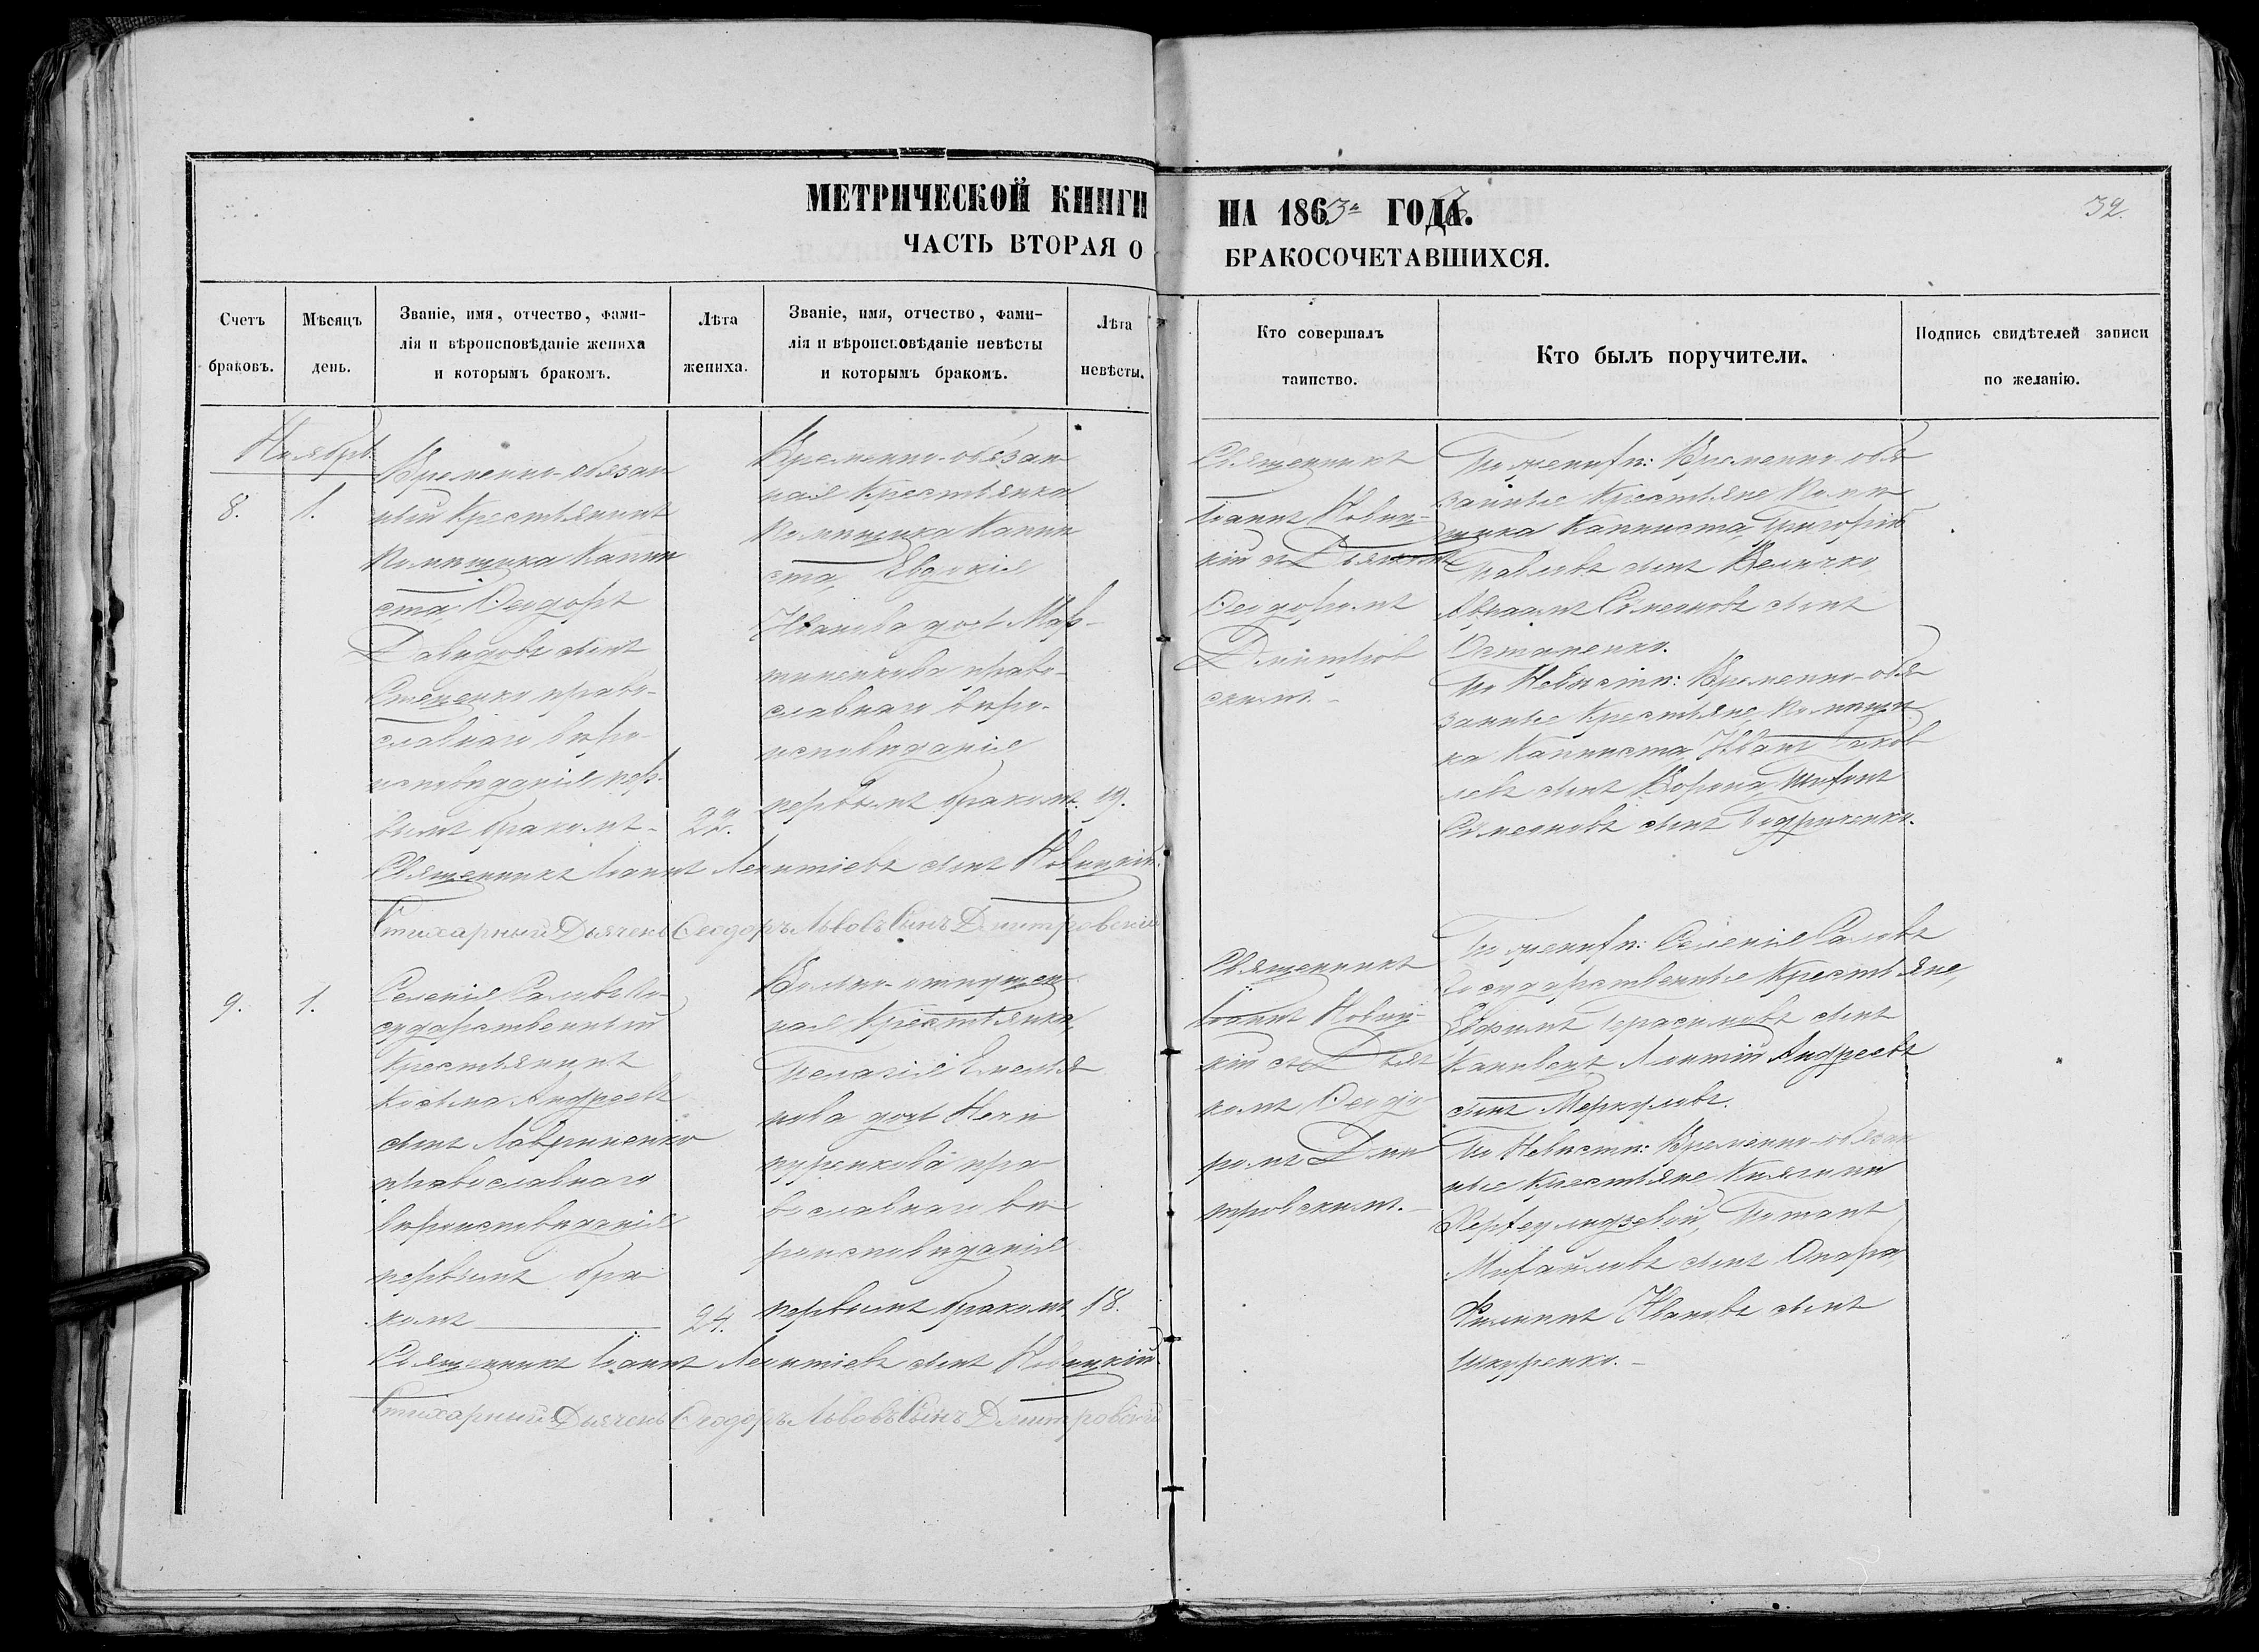 МЕТРИЧЕСКОЙ КНИГИ НА 1863го ГОДА.
32.
ЧАСТЬ ВТОРАЯ О БРАКОСОЧЕТАВШИХСЯ.
Счетъ браковъ.
Мѣсяцъ день.
Званіе, имя, отчество, фами-
лія и вѣроисповѣданіе жениха
и которымъ бракомъ.
Лѣта жениха.
Званіе, имя, отчество, фами-
лія и вѣроисповѣданіе невѣсты
и которымъ бракомъ.
Лѣта невѣсты.
Кто совершалъ
таинство.
Кто былъ поручители.
Подпись свидѣтелей записи
по желанію.
Ноябрь.
8.
1.
Временно-обязан
ный Крестьянинъ
Помѣщика Капни
ста, Ѳеодоръ
Давидовъ сынъ
Стеценко право-
славнаго вѣро-
исповѣданія пер-
вымъ бракомъ.
22.
Временно-обязан
ная Крестьянка
Помѣщика Капни
ста, Евдокія
Иванова дочь Мар-
тиненкова право-
славнаго вѣро-
исповѣданія
первымъ бракомъ.
19.
Священникъ
Іоаннъ Новиц-
кій съ Дьячкомъ
Ѳеодоромъ
Дмитров
скимъ.
По женихѣ: Временно-обя
занные Крестьяне Помѣ
щика Капниста, Григорій
Павловъ сынъ Величко,
Авраамъ Симеоновъ сынъ
Остапенко.
По Невѣстѣ: Временно-обя
занные Крестьяне, Помѣщи
ка Капниста, Иванъ Іаков
левъ сынъ Ворона,
Симеоновъ сынъ
Священникъ Іоаннъ Леонтіевъ сынъ Новицкій.
Стихарный Дьячекъ Ѳеодоръ Львовъ Сынъ Дмитровскій
9.
1.
Селенія Саловъ Го-
сударственный
Крестьянинъ
Косьма Андреевъ
сынъ Лавриненко
православнаго
вѣроисповѣданія
первымъ бра
комъ
24.
Вольно-отпущен
ная Крестьянка,
Пелагія Емелья
нова дочь Нечи
пуренкова пра
вославнаго вѣ
роисповѣданія
первымъ бракомъ
18.
Священникъ
Іоаннъ Новиц-
кій съ Дьяч
комъ Ѳеодо
ромъ Дми
тровскимъ.
По женихѣ: Селенія Саловъ
Государственные Крестьяне,
Евфимъ Герасимовъ сынъ
Каневецъ, Леонтій Андреевъ
сынъ Меркуловъ.
По Невѣстѣ: Временно-обязан
ные Крестьяне Княгини
Херхеулидзевой, Потапъ
Михайловъ сынъ Опара,
Филиппъ Ивановъ сынъ
Шкуренко.
Священникъ Іоаннъ Леонтіевъ сынъ Новицкій.
Стихарный Дьячекъ Ѳеодоръ Львовъ Сынъ Дмитровскій